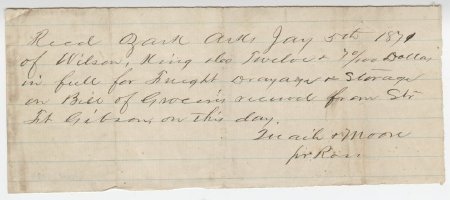 Recd Ozark Arks Jay 5th 1871
of Wilson, King & Co Twelve & 70/100 Dollars
in full for Freight Drayage & Storage
on Bill of Groceries received from Str
Ft Gibson, on this day.
& Moore
pr Ross